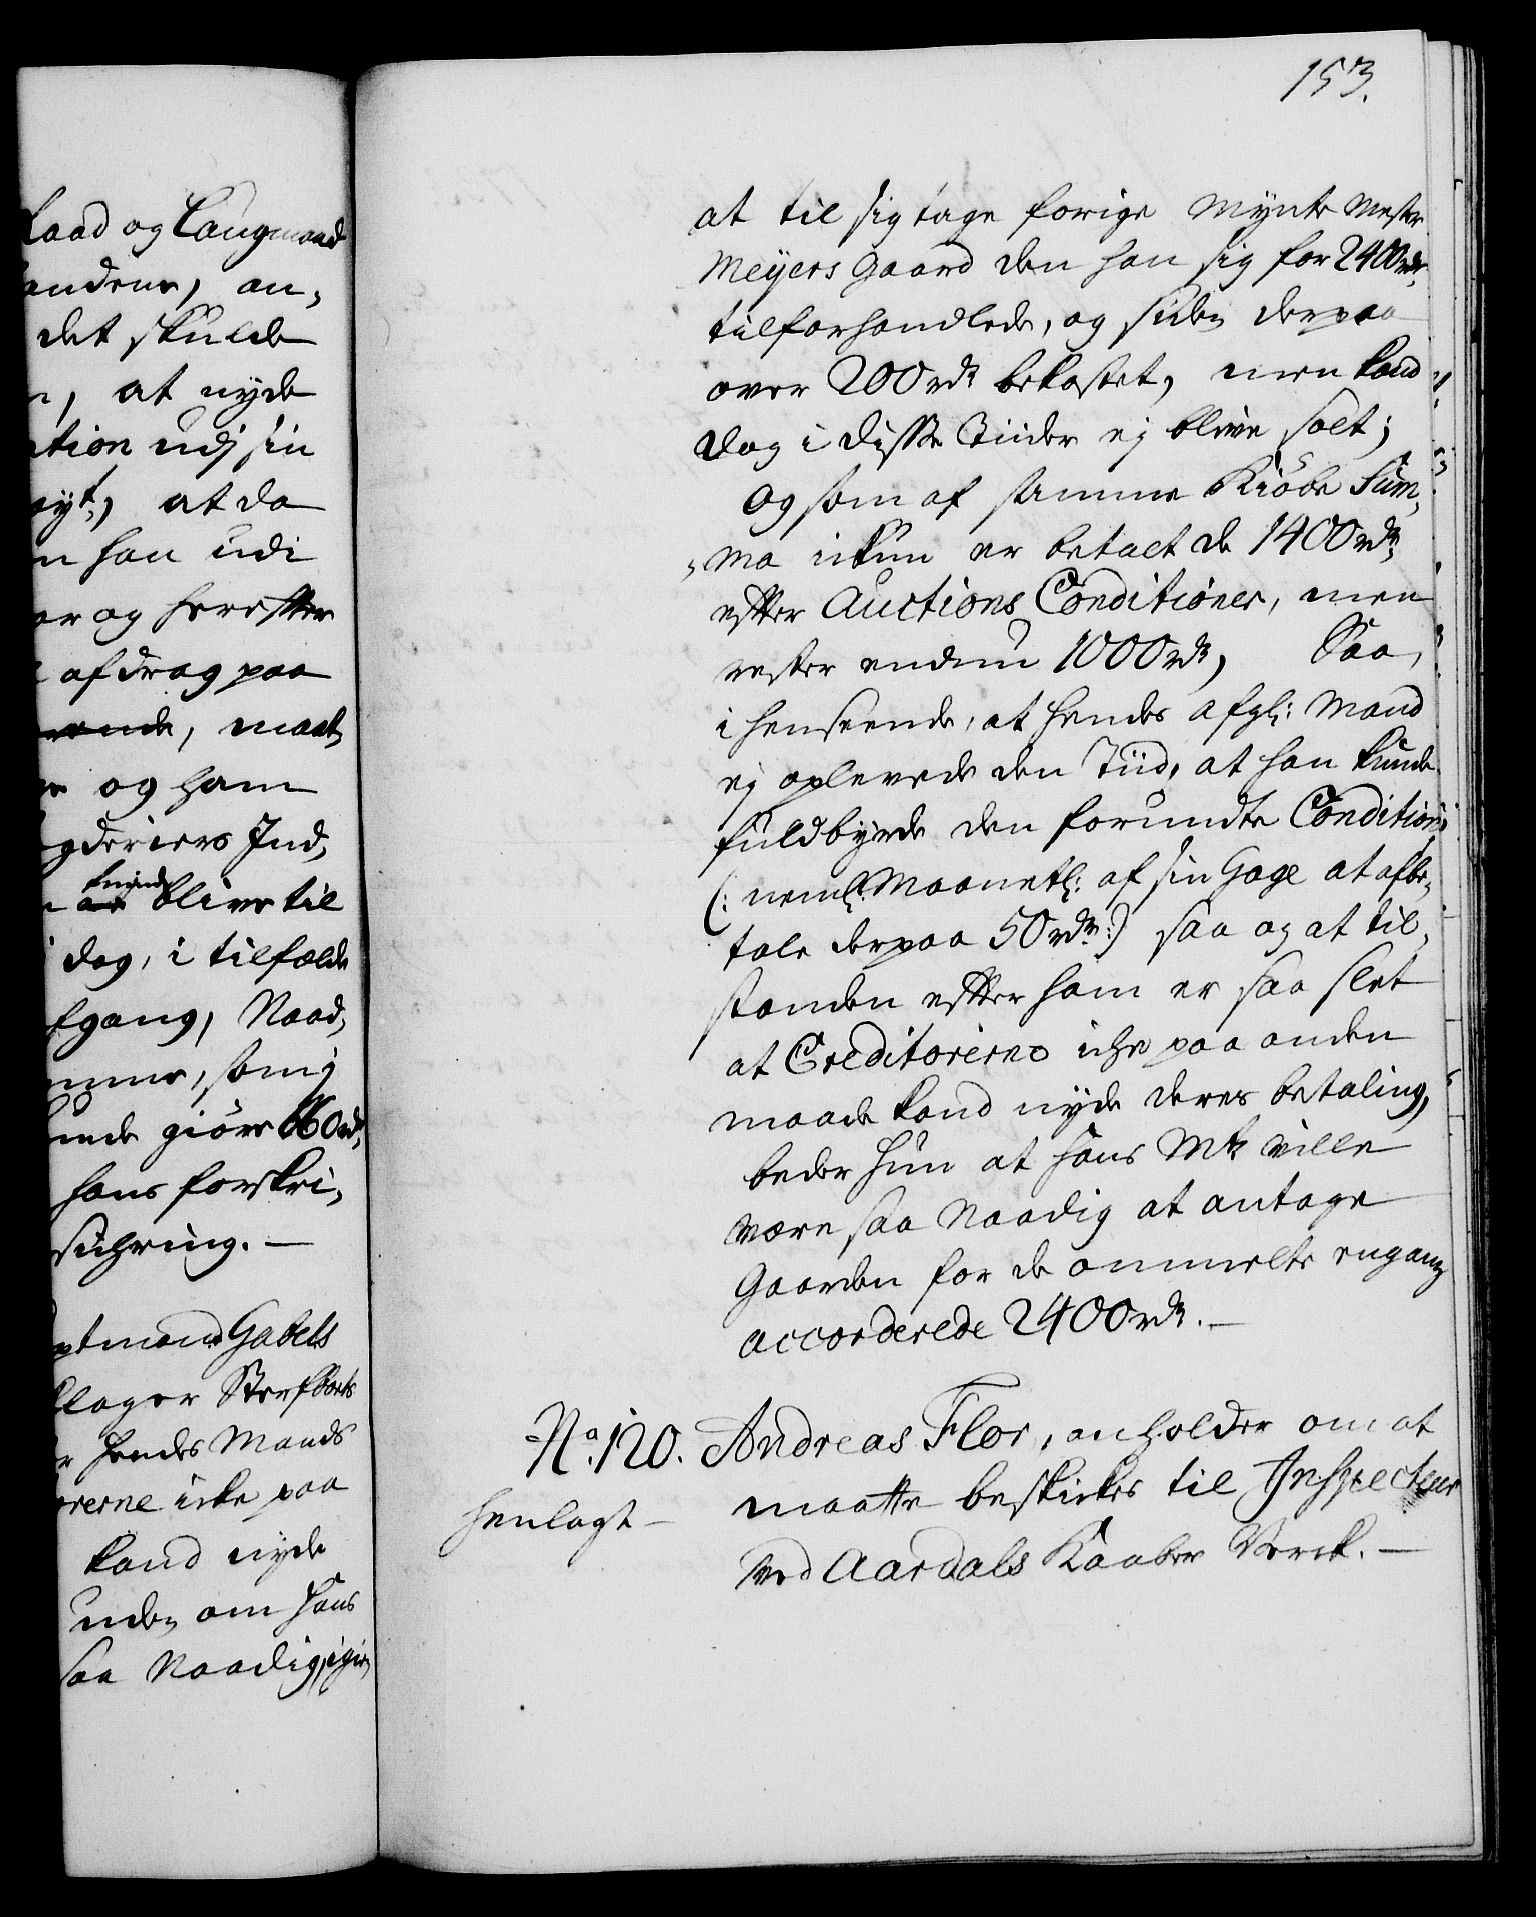 Raad og Laugmand
andene, an-
det skulde
n, at nyde
ation udj sin
nyt, at da
n han udi
er og herefter
afdrag paa
ende, maat,
og ham
gderiers Ind,
kunde
blive til
dog, i tilfælde
fgang, Naad,
mme, som j
unde giøre 660 rdr,
hans forskri,
sickring. —
ptmand Gabels
klager Sterfboets
hendes Mands
rerne icke paa
kand nyde
uden om Hans
saa Naadig, igien
153.
at til sig tage forige Mynte Mester
Meyers Gaard den han sig for 2400 rdr
tilforhandlede, og siden derpaa
over 200 rdr bekostet, men kand
dog i disse Tiider ej blive solt;
Og som af samme Kiøbe Sum-
-ma ickun er betalt de 1400 rdr
efter Auctions Conditioner, men
rester endnu 1000 rdr, Saa,
i henseende, at hendes afgl: Mand
ej oplevede den Tiid, at han kunde
fuldbyrde den forundte Condition
(: neml: Maanetl: af sin Gage at afbe-
tale derpaa 50 rdr :) saa og at til-
standen efter ham er saa slet
at Creditorerne icke paa anden
maade kand nyde deres betaling,
beder hun at Hans Mt ville
være saa Naadig at antage
Gaarden for de ommelte engang
accorderede 2400 rdr. —
No. 120. Andreas Flor, anholder om at
maatte beskickes til Inspecteur
henlagt —
ved Aardals Kaaber Verck. —